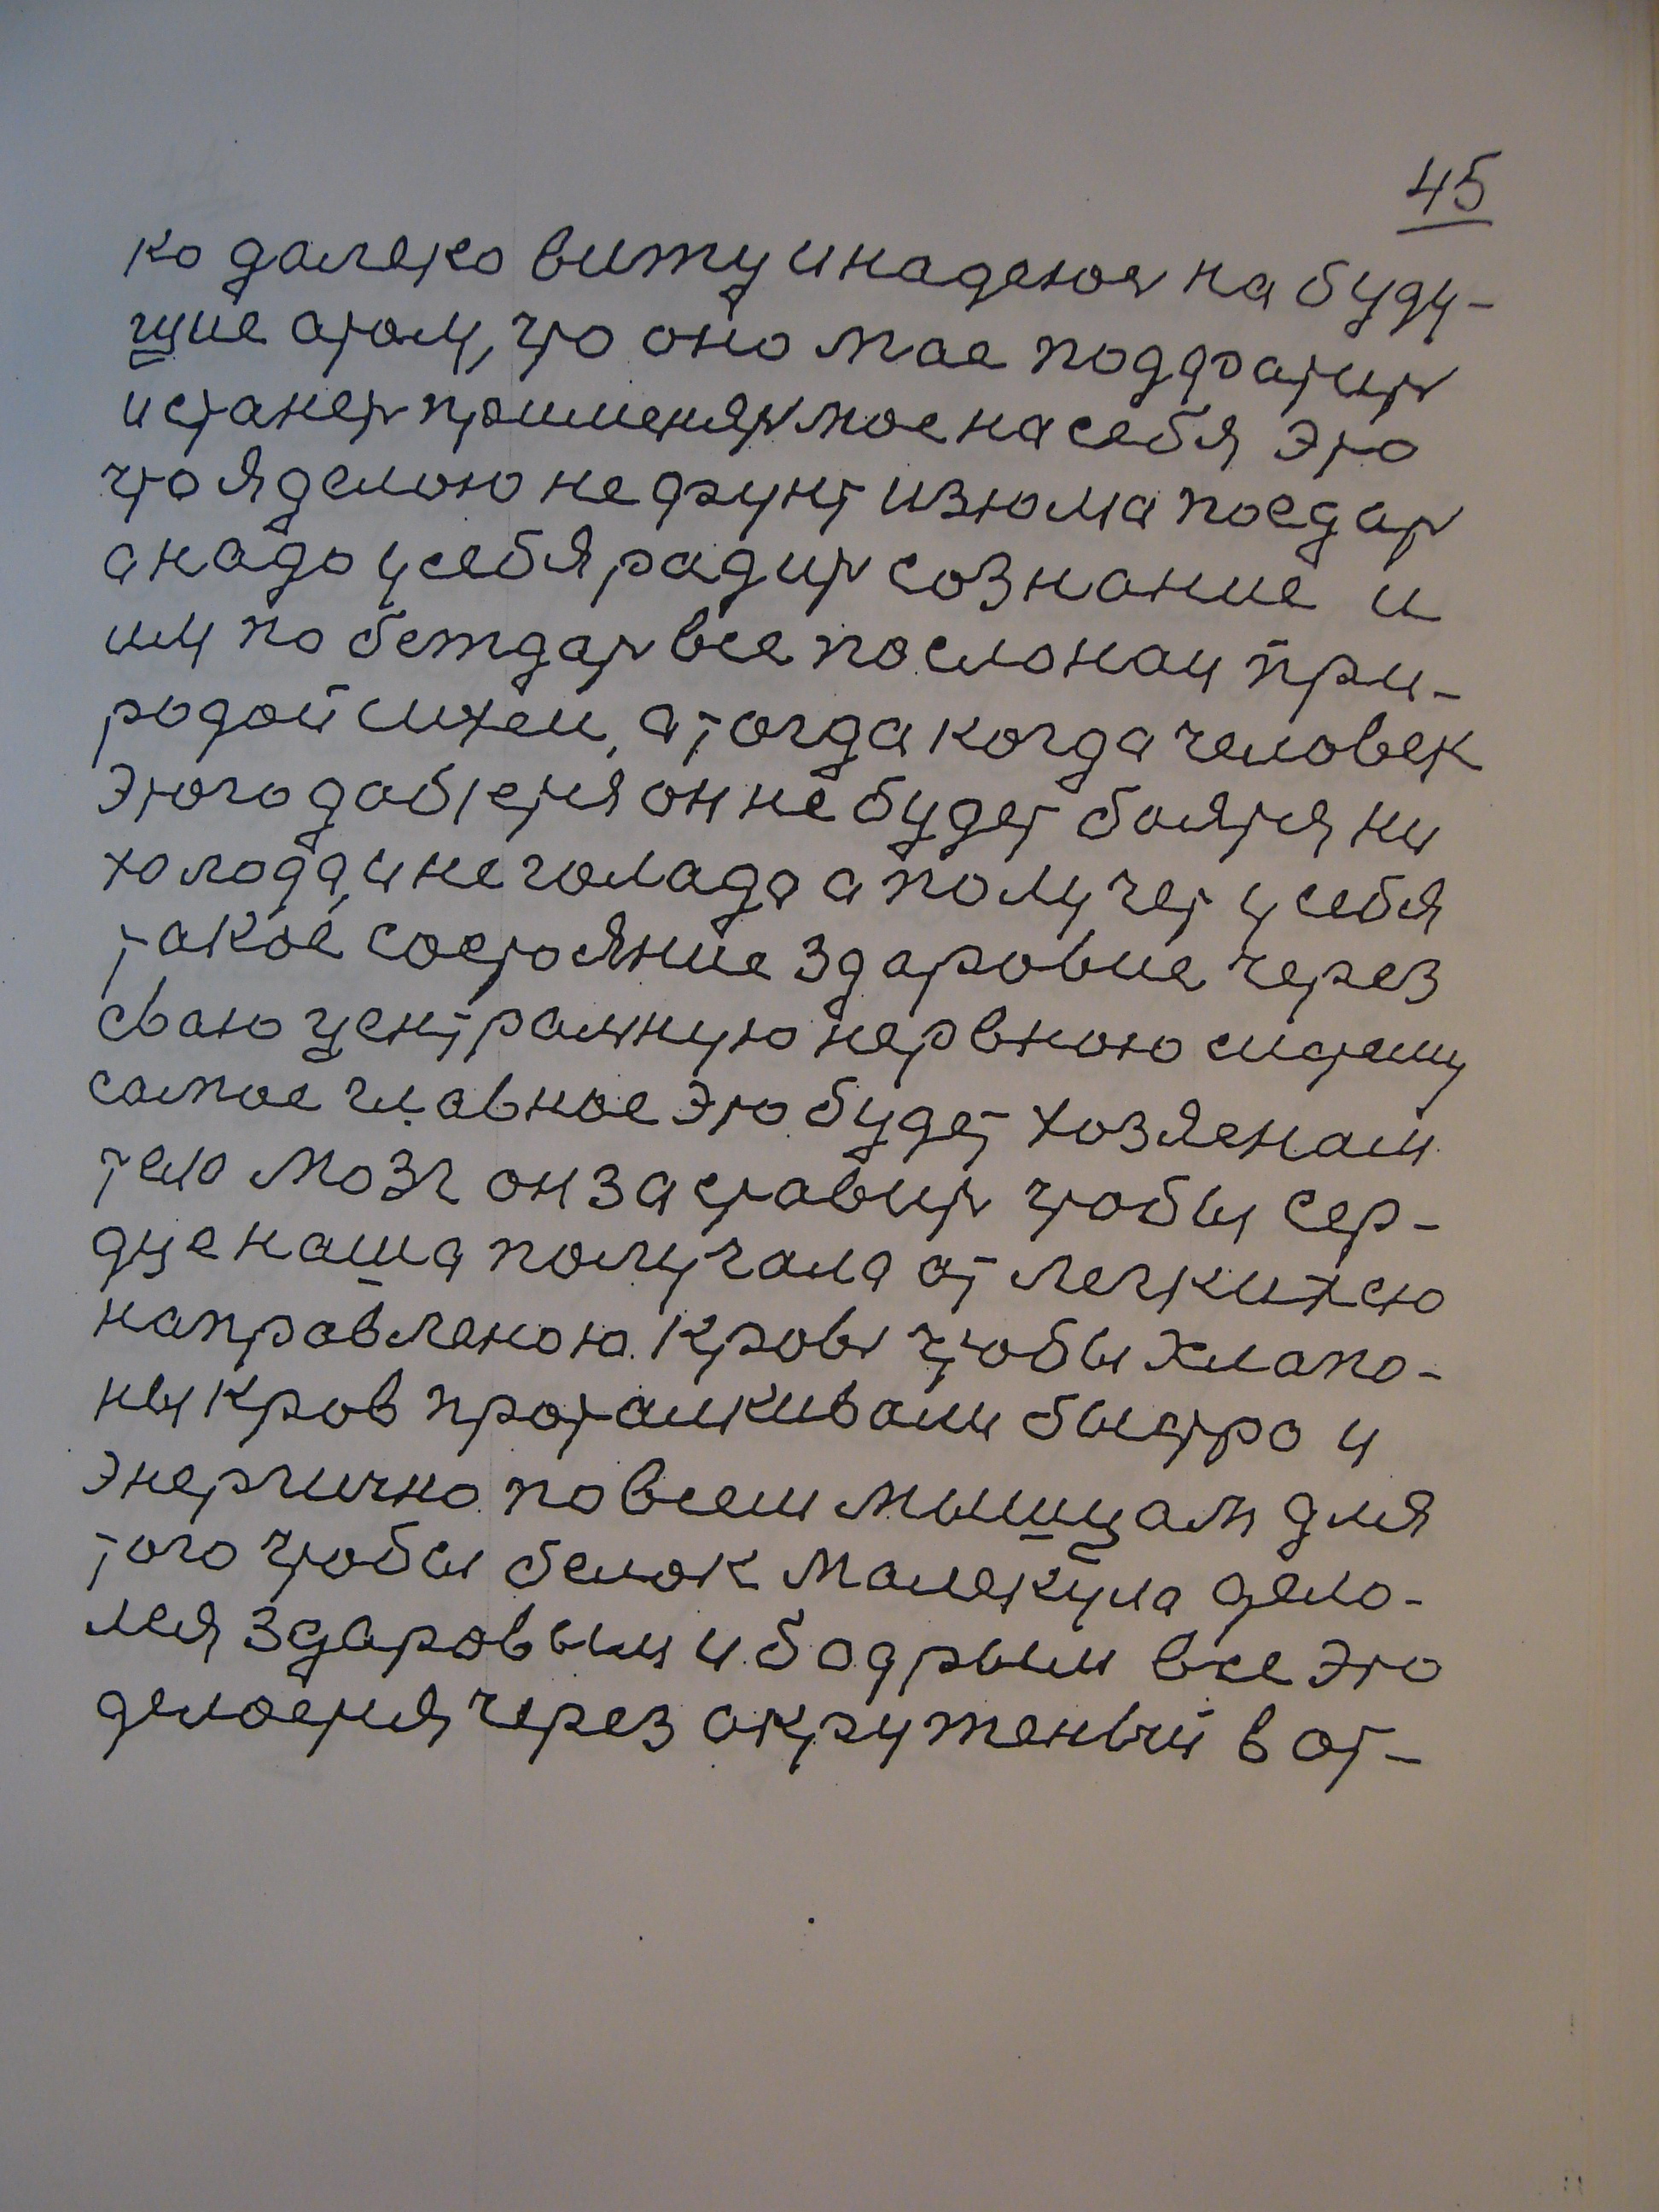 45
ко далеко вижу и надеюсь на буду-
щие отом, что оно мае поддратить
и станеть применять мое на себя это
что я делою не фрунт изюма поедать
а надо у себя радить сознание и
им побеждать все послонаи при-
родой стихеи, а тогда когда человек
этого добется он не будет боятся ни
холода, и не голада а получет у себя
такое состояние здаровие через
сваю централную нервною систему
самое главное это будет хозяенам
тело мозг он заставить чтобы сер-
дце наша получала от легких сю
направленою кровь чтобы хлапо-
ны кров проталкивали быстро и
энергично по всем мышцам для
того чтобы белок малекула дело-
лся здаровым и бодрым все это
делоется через окруженый в от-